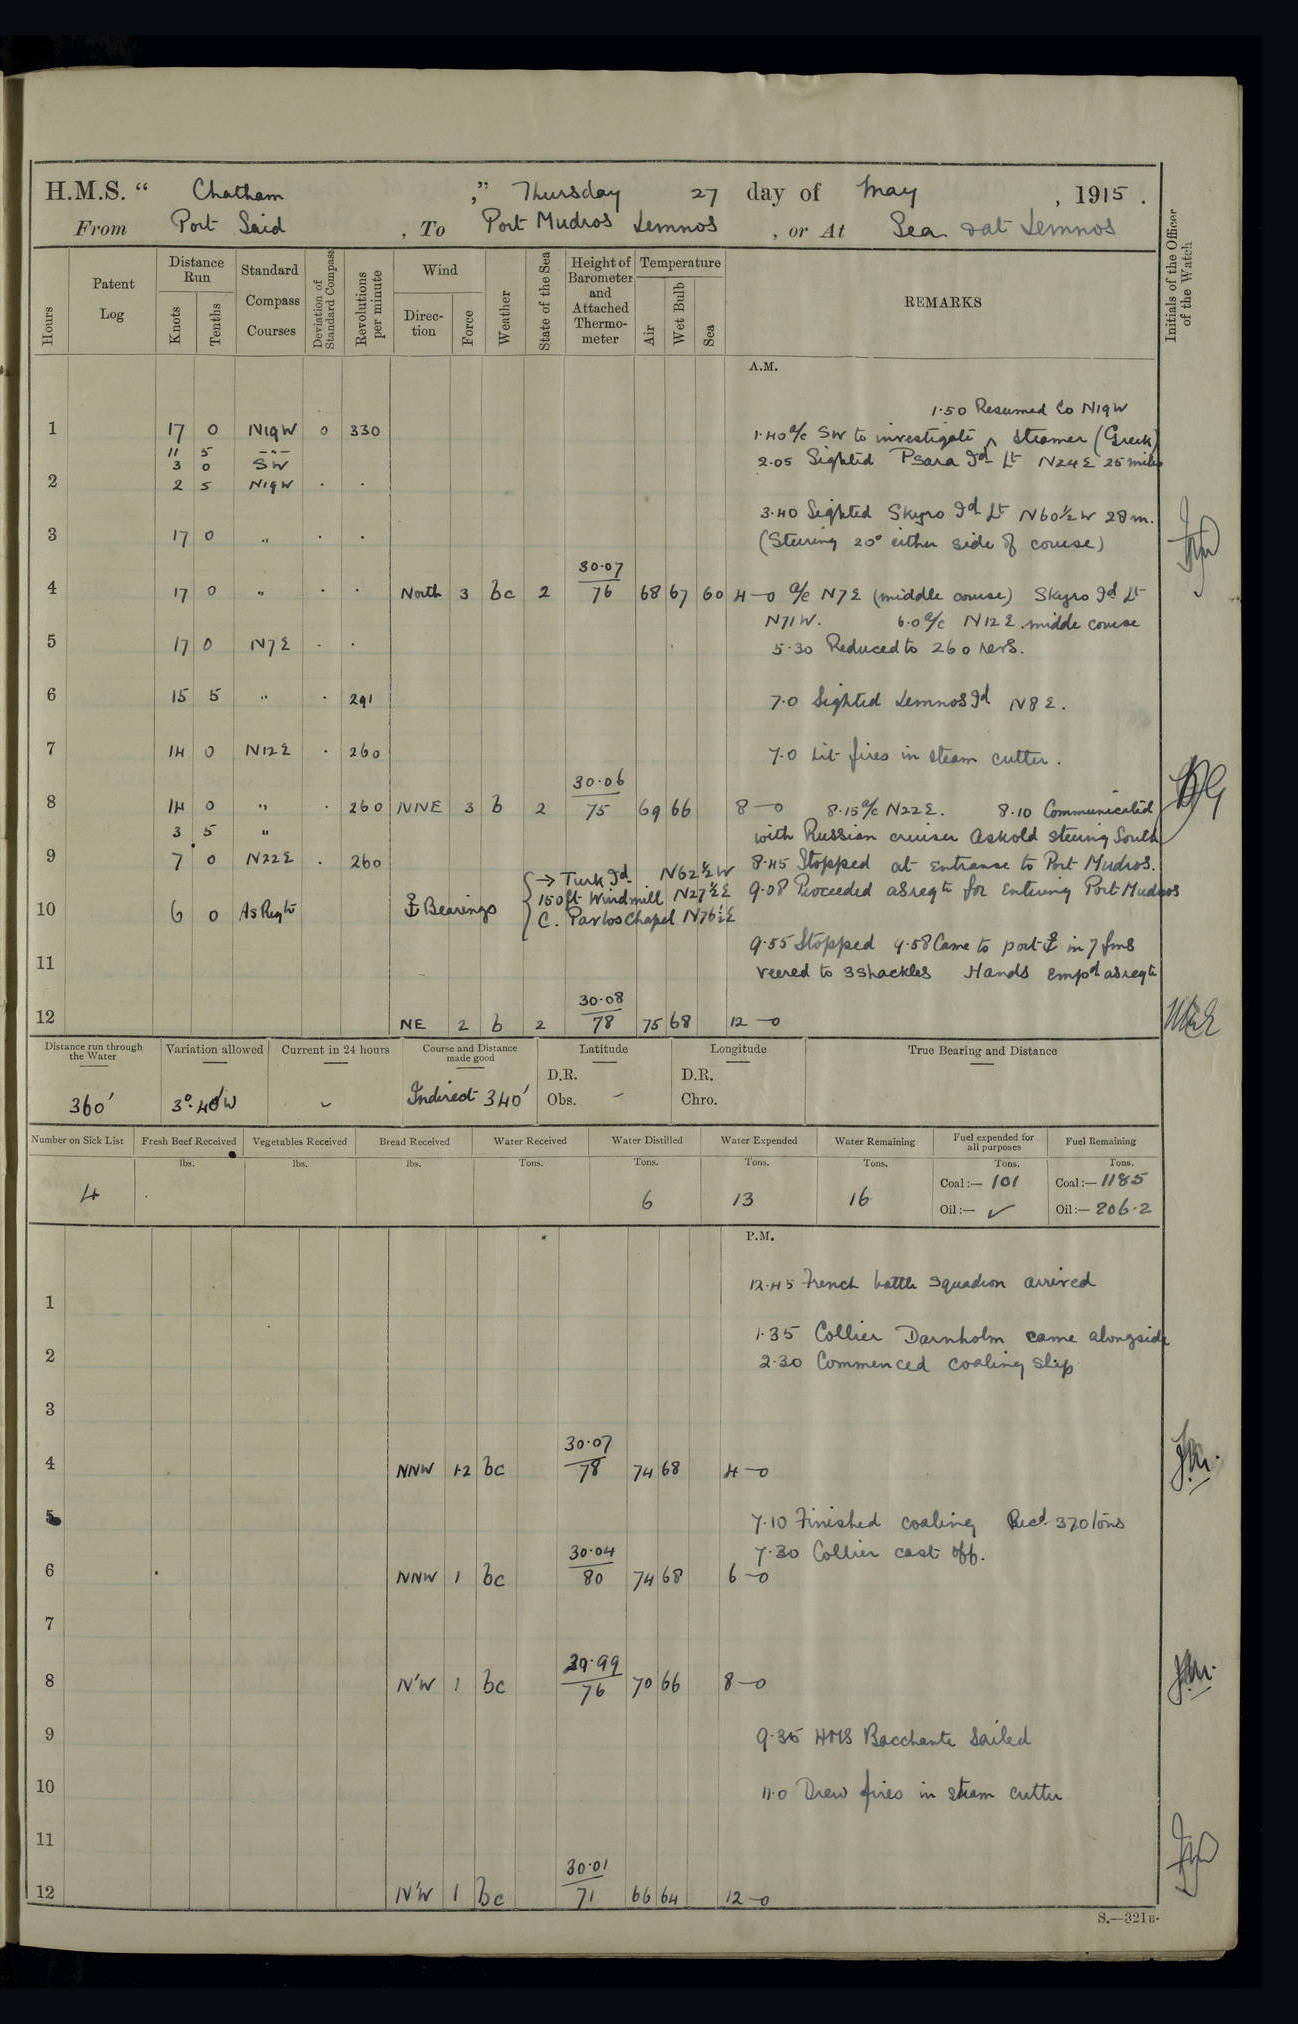 H.M.S. “ Chatham ,” Thursday 27 day of May , 1915 .
From Port Said , To Port Mudros Lemnos , or At Sea & at Lemnos
Hours
Patent Log
Distance Run
Knots
Tenths
Standard Compass Courses
Deviation of Standard Compass
Revolutions per minute
Wind
Direction
Force
Weather
State of the Sea
Height of Barometer and Attached Thermometer
Temperature
Air
Wet Bulb
Sea
REMARKS
Initials of the Officer of the Watch
A.M.
1·50 Resumed Co N19W
1 17 0 N19W 0 330 1·40 a/c SW to investigate ^ steamer (Greek)
11 5 - - -
3 0 SW 2·05 Sighted Psara Id Lt N24E 25 miles
2 2 5 N19W · ·
3·40 Sighted Skyro Id Lt N60½W 28m.
3 17 0 " · · (Steering 20° either side of course)
30·07
4 17 0 " · · North 3 bc 2 76 68 67 60 4-0 a/c N7E (middle course) Skyro Id Lt
N71W. 6·0 a/c N12E middle course
5 17 0 N7E · · 5·30 Reduced to 260 revs.
6 15 5 " · 291 7·0 Sighted Lemnos Id N8E.
7 14 0 N12E · 260 7·0 Lit fires in steam cutter.
30·06
8 14 0 " · 260 NNE 3 b 2 75 69 66 8-0 8·15 a/c N22E. 8·10 Communicated
3 5 " with Russian cruiser Askold steering South
9 7 0 N22E · 260 8·45 Stopped at entrance to Port Mudros.
→ Turk Id N62½W
150ft Windmill N27½E 9·08 Proceeded as reqte for entering Port Mudros
10 6 0 As Reqte ⚓ Bearings C. Pavlos Chapel N76½E
9·55 Stopped 9·58 Came to port ⚓ in 7 fms
11 veered to 3 shackles Hands empd as reqte
30·08
12 NE 2 b 2 78 75 68 12-0
Distance run through the Water
Variation allowed
Current in 24 hours
Course and Distance made good
Latitude
Longitude
True Bearing and Distance
360′ 3°·40′W Indirect 340′
D.R. D.R.
Obs. Chro.
Number on Sick List
Fresh Beef Received
Vegetables Received
Bread Received
Water Received
Water Distilled
Water Expended
Water Remaining
Fuel expended for all purposes
Fuel Remaining
lbs. lbs. lbs. Tons. Tons. Tons. Tons. Tons. Tons.
4 6 13 16
Coal :— 101 Coal :— 1185
Oil :— ✓ Oil :— 206·2
P.M.
12·45 French battle squadron arrived
1
1·35 Collier Darnholm came alongside
2 2·30 Commenced coaling ship
3
30·07
4 NNW 1-2 bc 78 74 68 4-0
5 7·10 Finished coaling Recd 370 tons
7·30 Collier cast off.
30·04
6 NNW 1 bc 80 74 68 6-0
7
29·99
8 N'W 1 bc 76 70 66 8-0
9 9·35 HMS Bacchante sailed
10 11·0 Drew fires in steam cutter
11
30·01
12 N'W 1 bc 71 66 64 12-0
S.—321B.